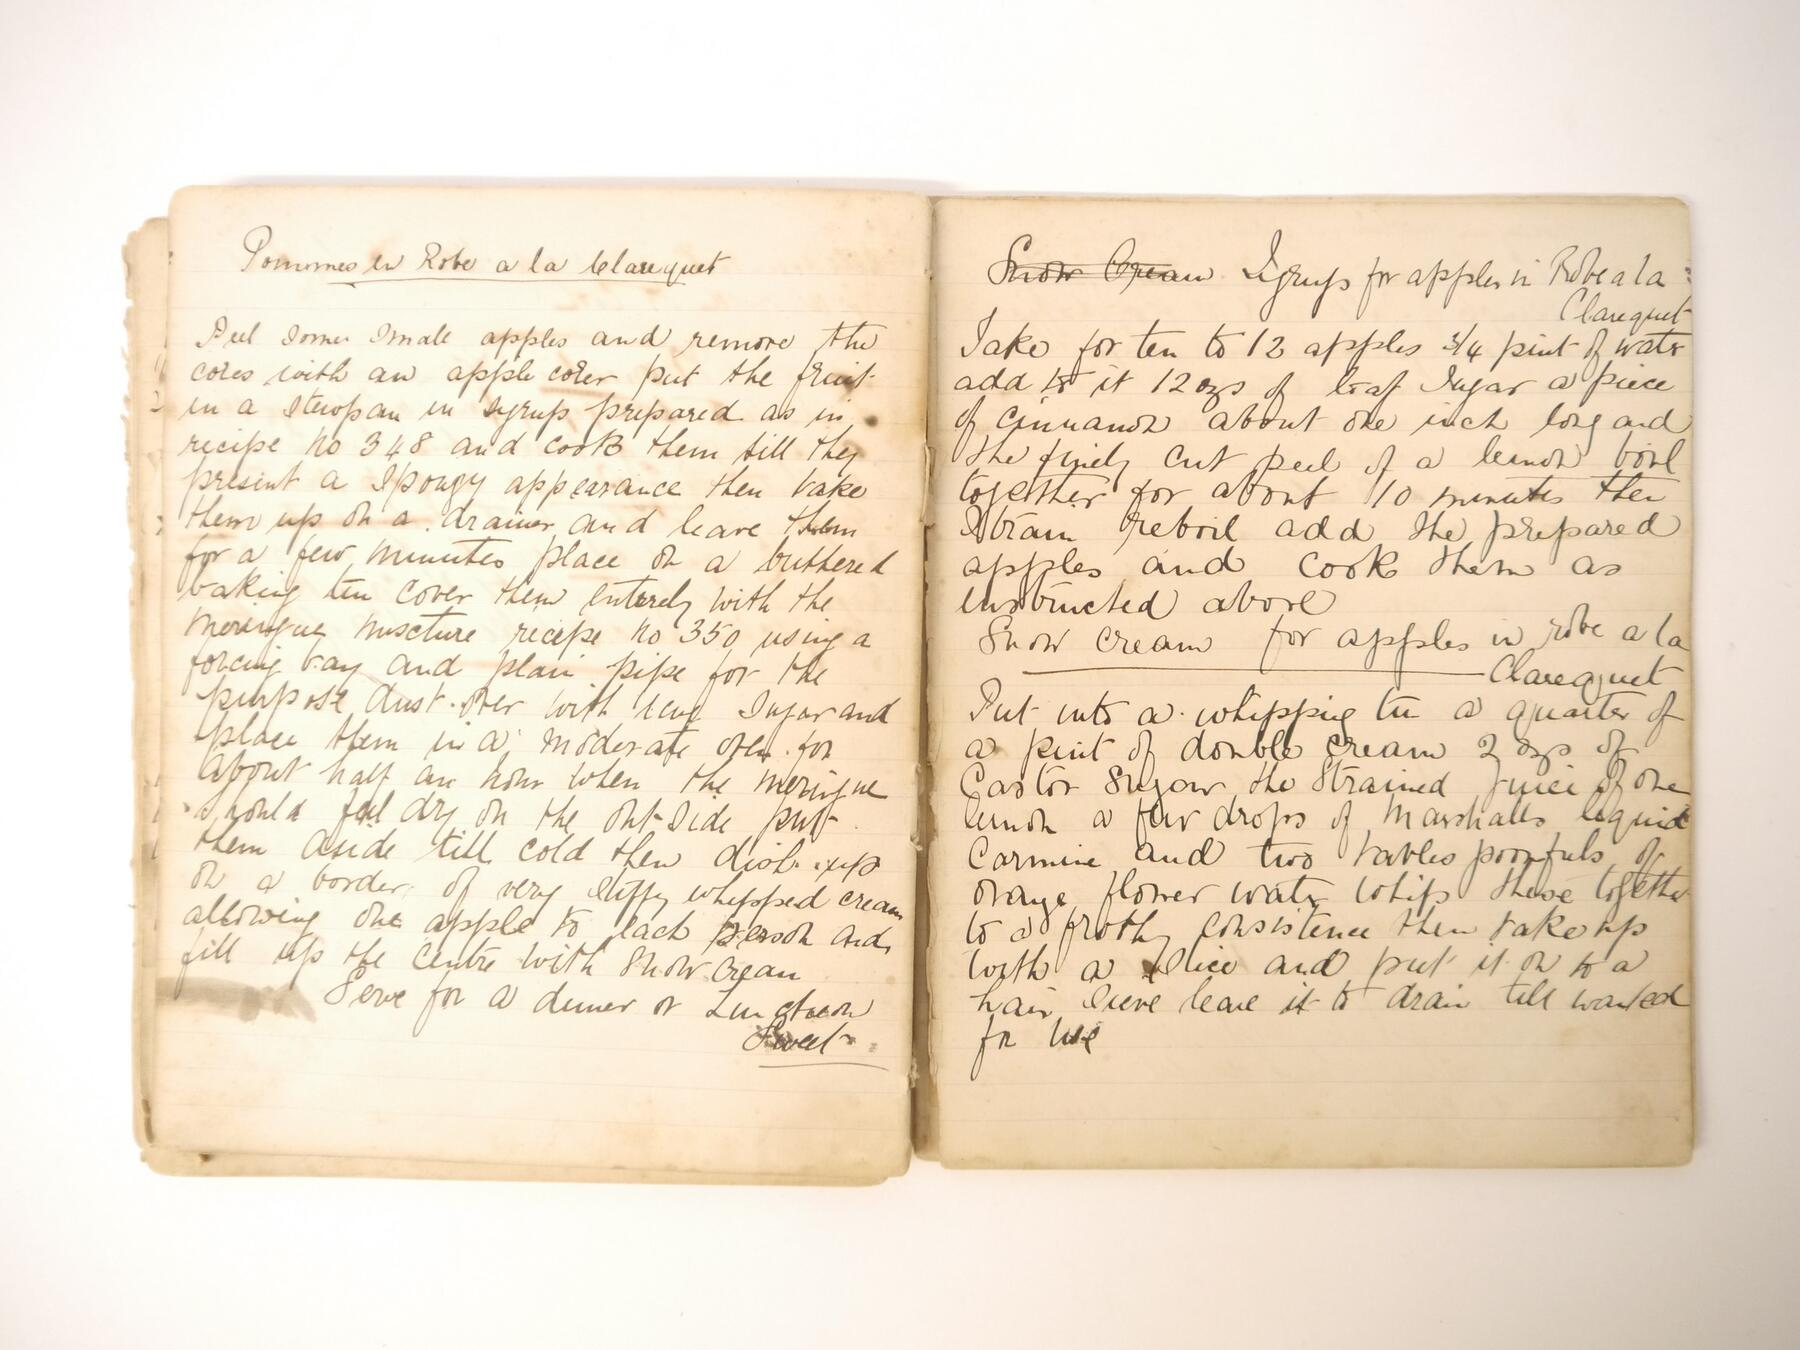 Pommes en Robe a la Clarequet
Peel some small apples and remove the
cores with an apple corer put the fruit
in a stewpan in syrup prepared as in
recipe no 348 and cook them till they
present a spongy appearance then take
them up on a drainer and leave them
for a few minutes place on a buttered
baking tin cover them entirely with the
meringue muxture recipe no 350 using a
forcing bag and plain pipe for the
purpose dust over with icing sugar and
place them in a moderate oven for
about half an hour when the meringue
should feel dry on the out-side put
them aside till cold then dish up
on a border of very stiffy whipped cream
allowing one apple to each person and
fill up the centre with snow cream
Serve for a dinner or Luncheon
Sweet
Snow Cream Syrup for apples in Robe a la
Clarequet
Take for ten to 12 apples 3/4 pint of water
add to it 12 ozs of loaf sugar a piece
of cinnamon about one inch long and
the finely cut peel of a lemon boil
together for about 10 minutes then
strain reboil add the prepared
apples and cook them as
instructed above
Snow cream for apples in robe a la
Clarequet
Put into a whipping tin a quarter of
a pint of double cream 2 ozs of
Castor Sugar the strained juice of one
lemon a few drops of Marshalls liquid
Carmine and two tablespoonfuls of
orange flower water whip these together
to a frothy consistence then take up
with a slice and put it on to a
hair sieve leave it to drain till wanted
for use